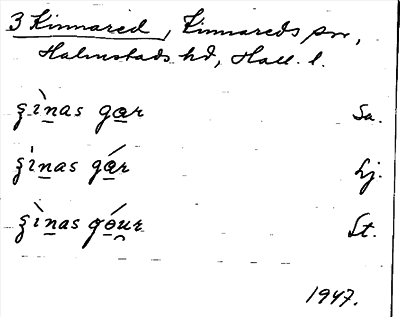 3 Kinnared, Kinnareds sn,
Halmstads hd, Hall. l.
ʒìnas gar Sa.
ʒìnas gár Lj.
ʒìnas góur St.
1947.